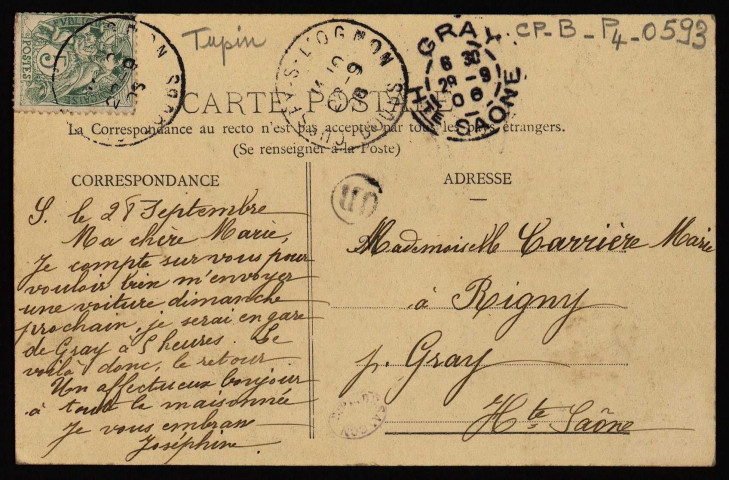 Tupin
CP_B_P4_0593
GRAY
6 30
29-9
06
Hte SAONE
S-L'OGNON
CARTE POSTALE
La Correspondance au recto n'est pas acceptée par tous les pays étrangers.
(Se renseigner à la Poste)
CORRESPONDANCE
S. le 28 Septembre
Ma chère Marie,
Je compte sur vous pour
vouloir bien m'envoyer
une voiture dimanche
prochain, je serai en gare
de Gray à 5 heures. Le
voilà donc, le retour.
Un affectueux bonjour
à toute la maisonnée
Je vous embran
Joséphine
ADRESSE
Mademoiselle Carrière Marie
à Rigny
p. Gray
Hte Saône